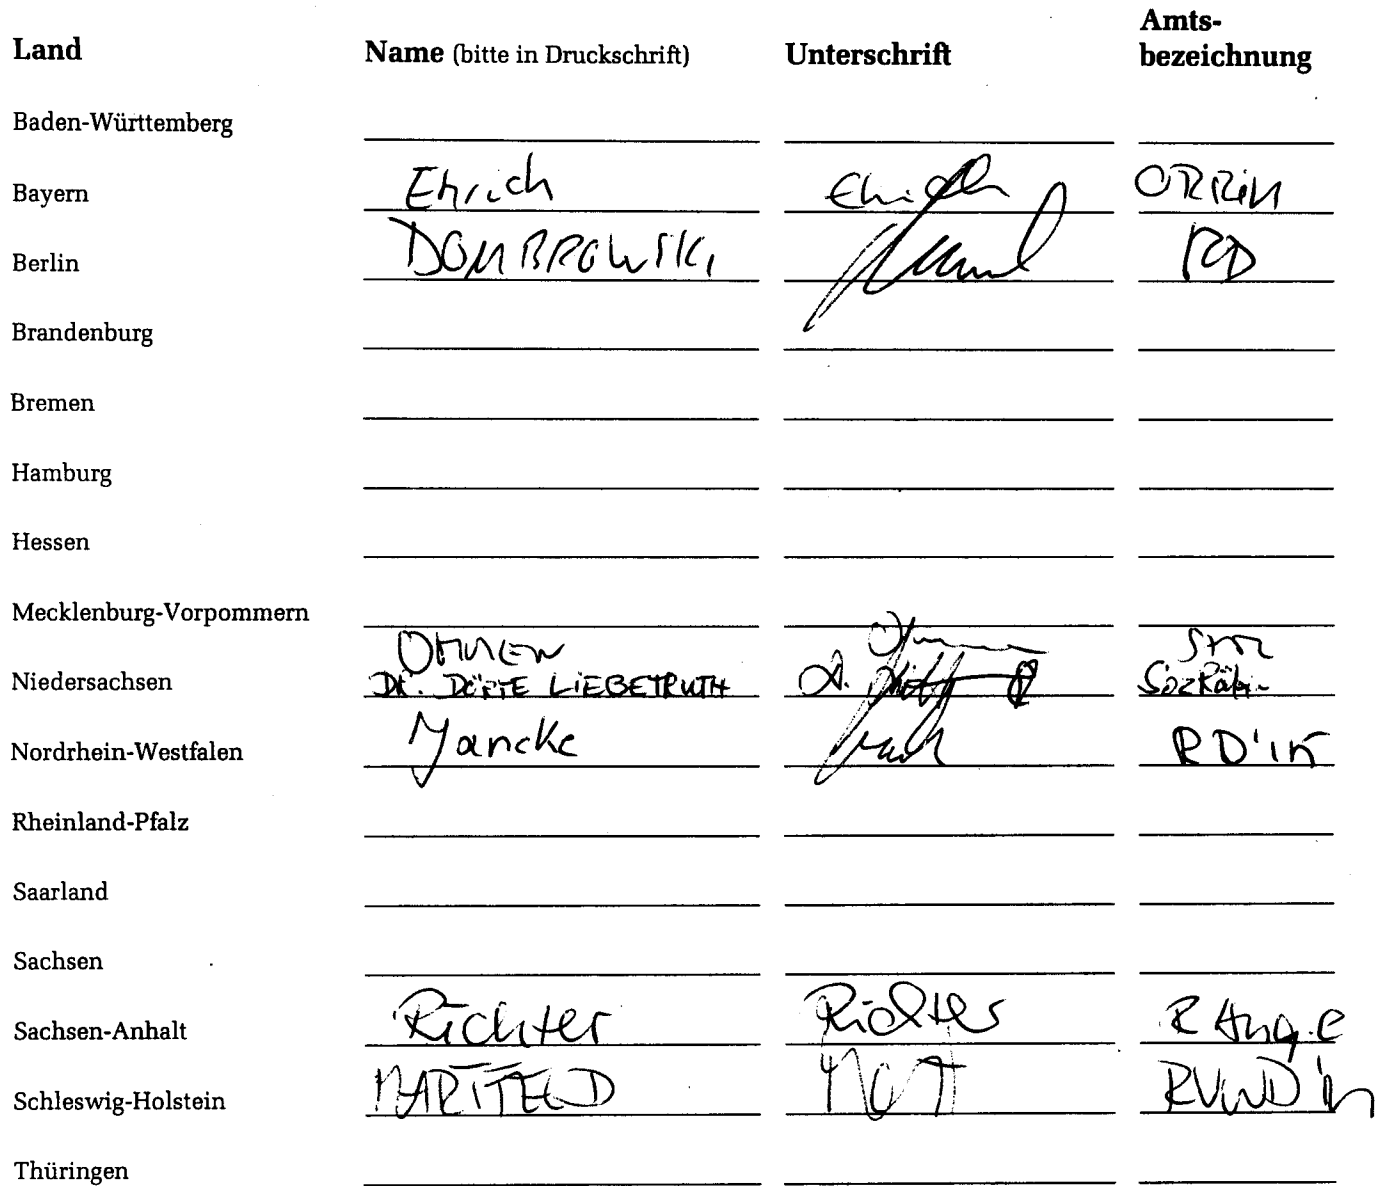 Land Name (bitte in Druckschrift) Unterschrift Amts-
bezeichnung
Baden-Württemberg
Bayern Ehrich Ehrich ORRin
Berlin DOMBROWSKI RD
Brandenburg
Bremen
Hamburg
Hessen
Mecklenburg-Vorpommern
Niedersachsen
Dr. DÖRTE LIEBETRUTH
Nordrhein-Westfalen Jancke RD'in
Rheinland-Pfalz
Saarland
Sachsen
Sachsen-Anhalt Richter Richter
Schleswig-Holstein
Thüringen